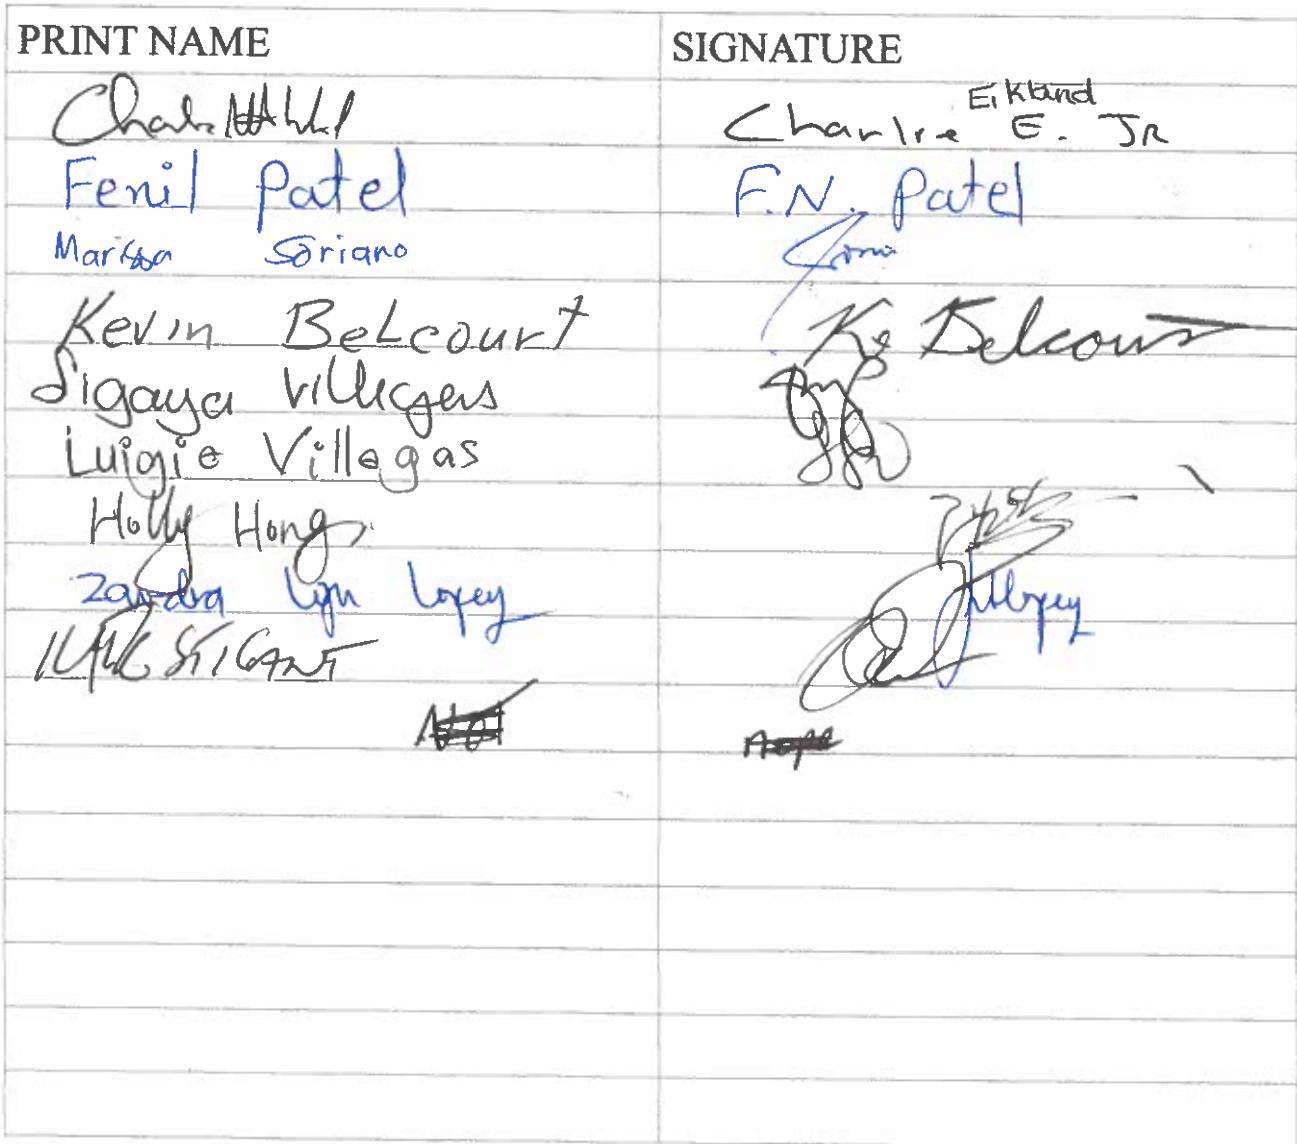 PRINT NAME SIGNATURE
Eikland
Charlre E. JR
Fenil Patel F.N. Patel
Marissa Soriano
Kevin BeLcourt Ke Belcourt
Sigaya Villegas
Luigie Villegas
Holly Hong
Zandra Lyn Lopez
STIGANT